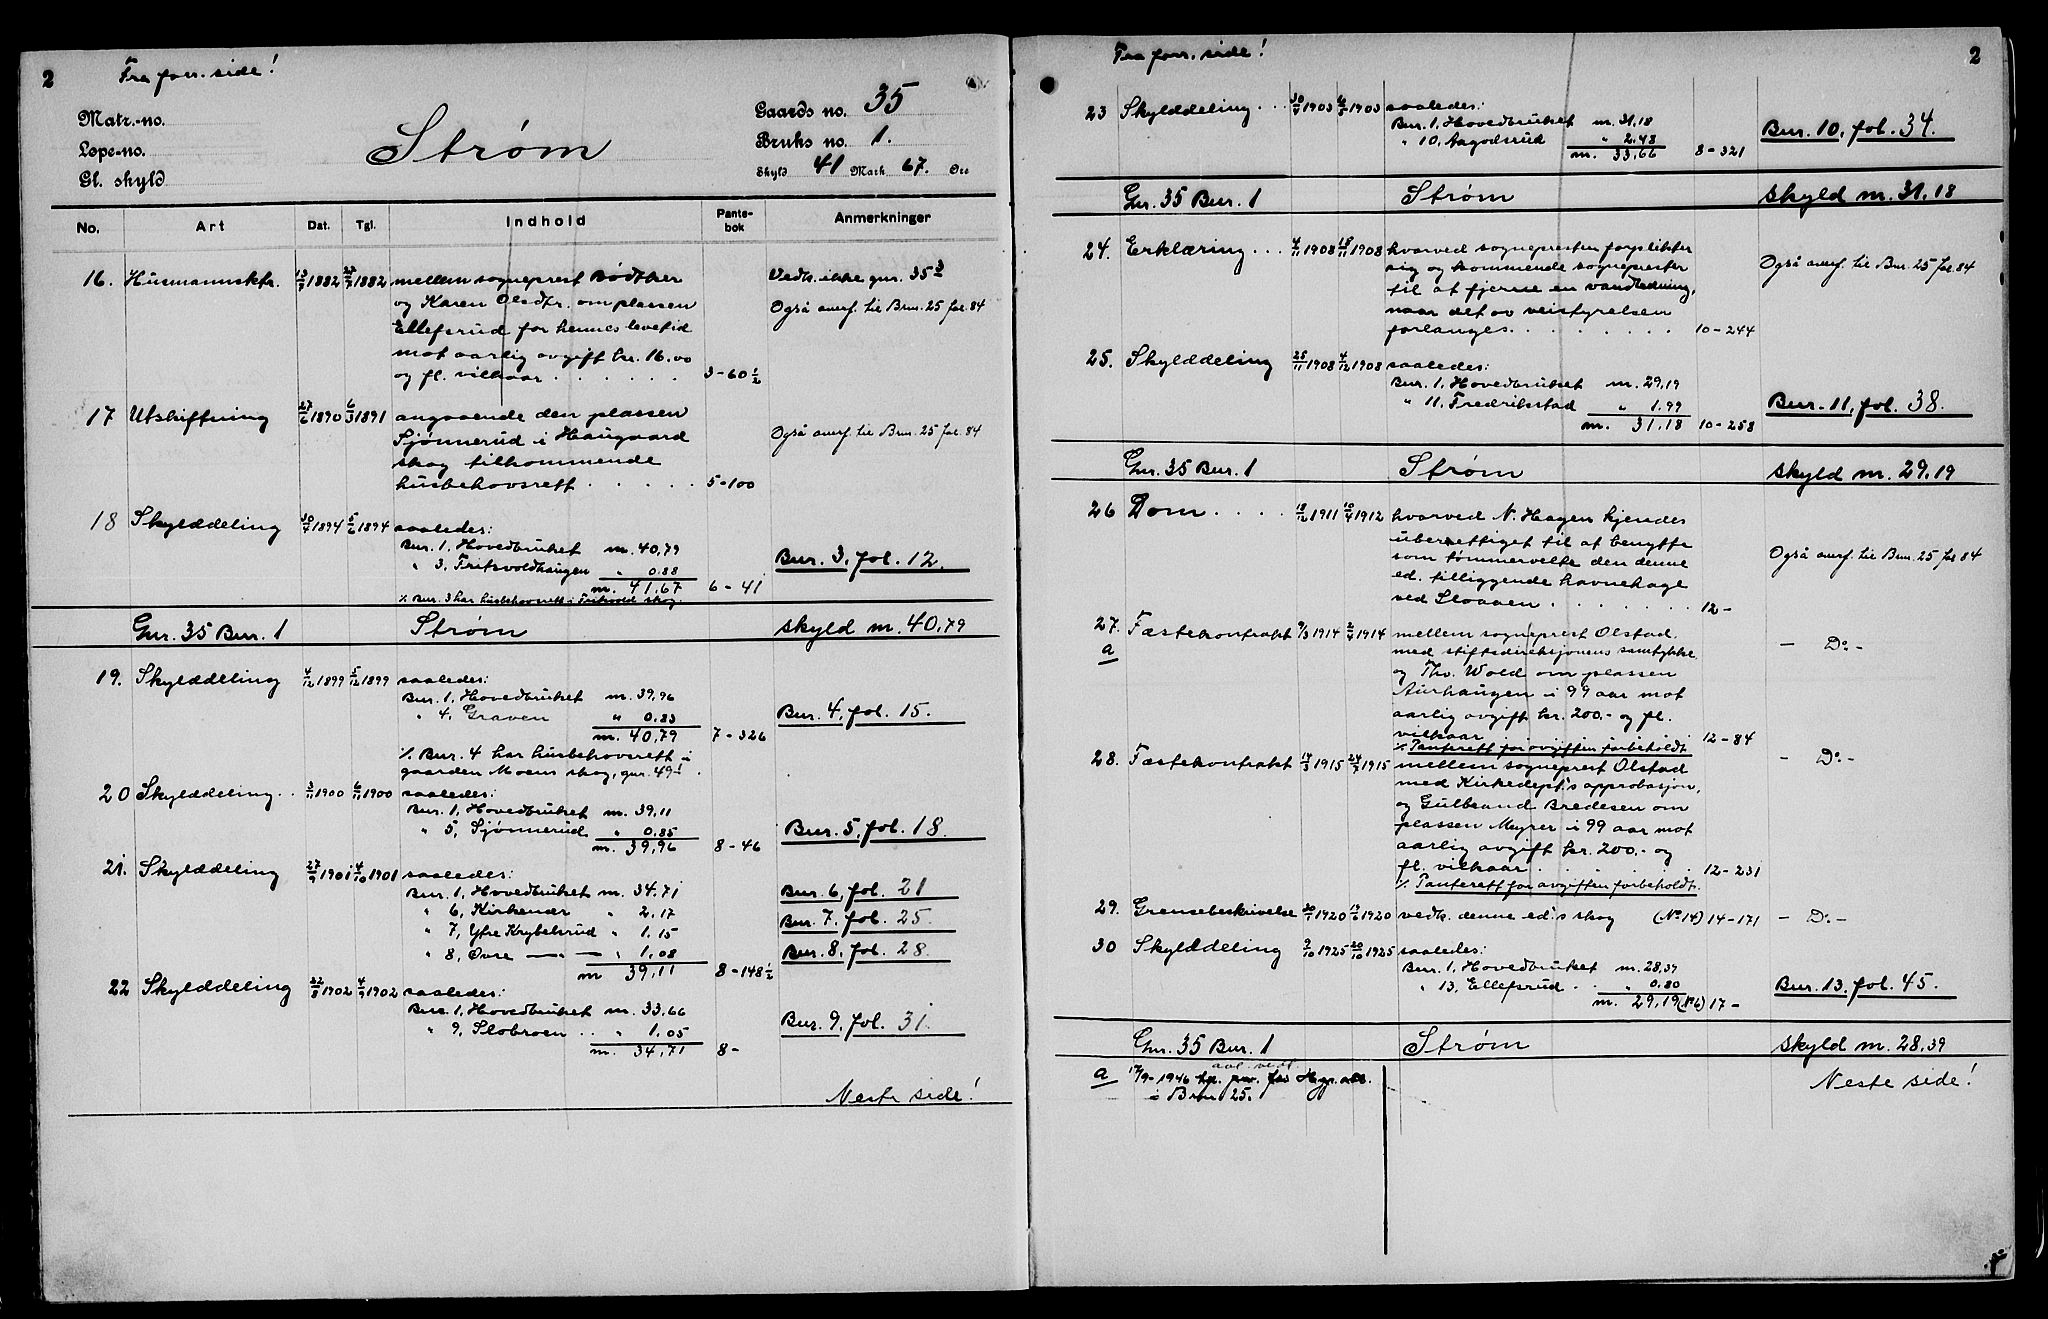 2 Fra forr. side!
Matr.-no.
Løpe-no.
Gl. skyld
Strøm
Gaards no. 35
Bruks no. 1.
Skyld 41 Mark 67. Øre
No. Art Dat. Tgl. Indhold Pante-bok Anmerkninger
16. Husmannsktr. 13/9 1882 1882 mellem sogneprest Bødtker Vedk. ikke gnr. 35 3
og Karen Olsdtr. om plassen Også anrf. til Brn. 25 fol. 84
Ellefsrud for hennes levetid
mot aarlig avgift kr. 16.00
og fl. vilkaar . . . . . . 3-60 1/2
17 Utskiftning 27/6 1890 6/3 1891 angaaende den plassen
Sjønnerud i Haugaard Også anrf. til Brn. 25 fol. 84
skog tilkommende
husbehovsrett . . . . . 5-100
18 Skylddeling 30/4 1894 5/6 1894 saaledes:
Bnr. 1, Hovedbruket m. 40,79
" 3, Fritzvoldhaugen " 0.88 Bnr. 3, fol. 12.
m. 41,67 6-41
% Bnr. 3 har husbehovsrett i Fritzvold skog.
Gnr. 35 Bnr. 1 Strøm skyld m. 40,79
19. Skylddeling 4/12 1899 5/12 1899 saaledes:
Bnr. 1, Hovedbruket m. 39,96
" 4, Graven " 0.83 Bnr. 4, fol. 15.
m. 40,79 7-326
% Bnr. 4 har husbehovsrett i
gaarden Moens skog, gnr. 49 1.
20 Skylddeling . . 3/11 1900 6/11 1900 saaledes:
Bnr. 1, Hovedbruket m. 39,11
" 5, Sjønnerud " 0.85 Bnr. 5, fol. 18.
m. 39,96 8-46
21. Skylddeling 27/9 1901 4/10 1901 saaledes:
Bnr. 1, Hovedbruket m. 34,71 Bnr. 6, fol. 21
" 6, Kirkenær " 2.17
" 7, Ytre Krybelsrud " 1.15 Bnr. 7. fol. 25.
" 8, Øvre — — " 1.08 Bnr. 8, fol. 28.
m 39,11 8-148 1/2
22 Skylddeling 22/8 1902 4/9 1902 saaledes:
Bnr. 1, Hovedbruket m. 33,66
" 9, Slobroen . . " 1.05 Bnr. 9, fol. 31.
m. 34,71 8-
Neste side!
Fra forr. side! 2
23 Skylddeling . . . 1903 1903 saaledes:
Bnr. 1, Hovedbruket m. 31,18
" 10, Aagodsrud " 2,48 Bnr. 10, fol. 34.
m. 33,66 8-321
Gnr. 35 Bnr. 1 Strøm skyld m. 31,18
24. Erklæring . . . 4/11 1908 18/11 1908 hvorved sognepresten forplikter
sig og kommende sogneprester Også anrf. til Bnr. 25 fol. 84
til at fjerne en vandledning,
naar det av veistyrelsen
forlanges. . . . . . . . 10-244
25. Skylddeling 25/11 1908 4/12 1908 saaledes:
Bnr. 1, Hovedbruket m. 29,19
" 11, Fredrikstad " 1.99 Bnr. 11, fol. 38.
m. 31.18 10-258
Gnr. 35 Bnr. 1 Strøm skyld m. 29,19
26 Dom . . . . 18/12 1911 10/4 1912 hvorved N. Hagen kjendes
uberettiget til at benytte
som tømmervelte den denne Også anrf. til Brn. 25 fol 84
ed. tilliggende havnehage
ved Sloaaen . . . . . . 12-
27. Fæstekontrakt 9/3 1914 2/4 1914 mellem sogneprest Olstad.
a med stiftsdireksjonens samtykke — Do —
og Thv. Wold om plassen
Aurhaugen i 99 aar mot
aarlig avgift kr. 200.- og fl.
vilkaar 12-84
% Panterett for avgiften forbeholdt.
28. Fæstekontrakt 14/3 1915 24/7 1915 mellem sogneprest Olstad — Do —
med Kirkedept's approbasjon,
og Gulbrand Bredesen om
plassen Meyrer i 99 aar mot
aarlig avgift kr. 200.- og
fl. vilkaar . . . . . . . 12-231
% Panterett for avgiften forbeholdt.
29. Grensebeskrivelse 30/1 1920 19/2 1920 vedk. denne ed's skog (No 14) 14-171 — Do —
30 Skylddeling 2/10 1925 20/10 1925 saaledes:
Bnr. 1, Hovedbruket m. 28,39
" 13, Ellefsrud . . " 0.80 Bnr. 13, fol. 45.
m. 29,19 (No 6) 17-
Gnr. 35 Bnr. 1 Strøm skyld m. 28,39
a 17/9-1946 Hyp. avl.
i Brn 25.
Neste side!